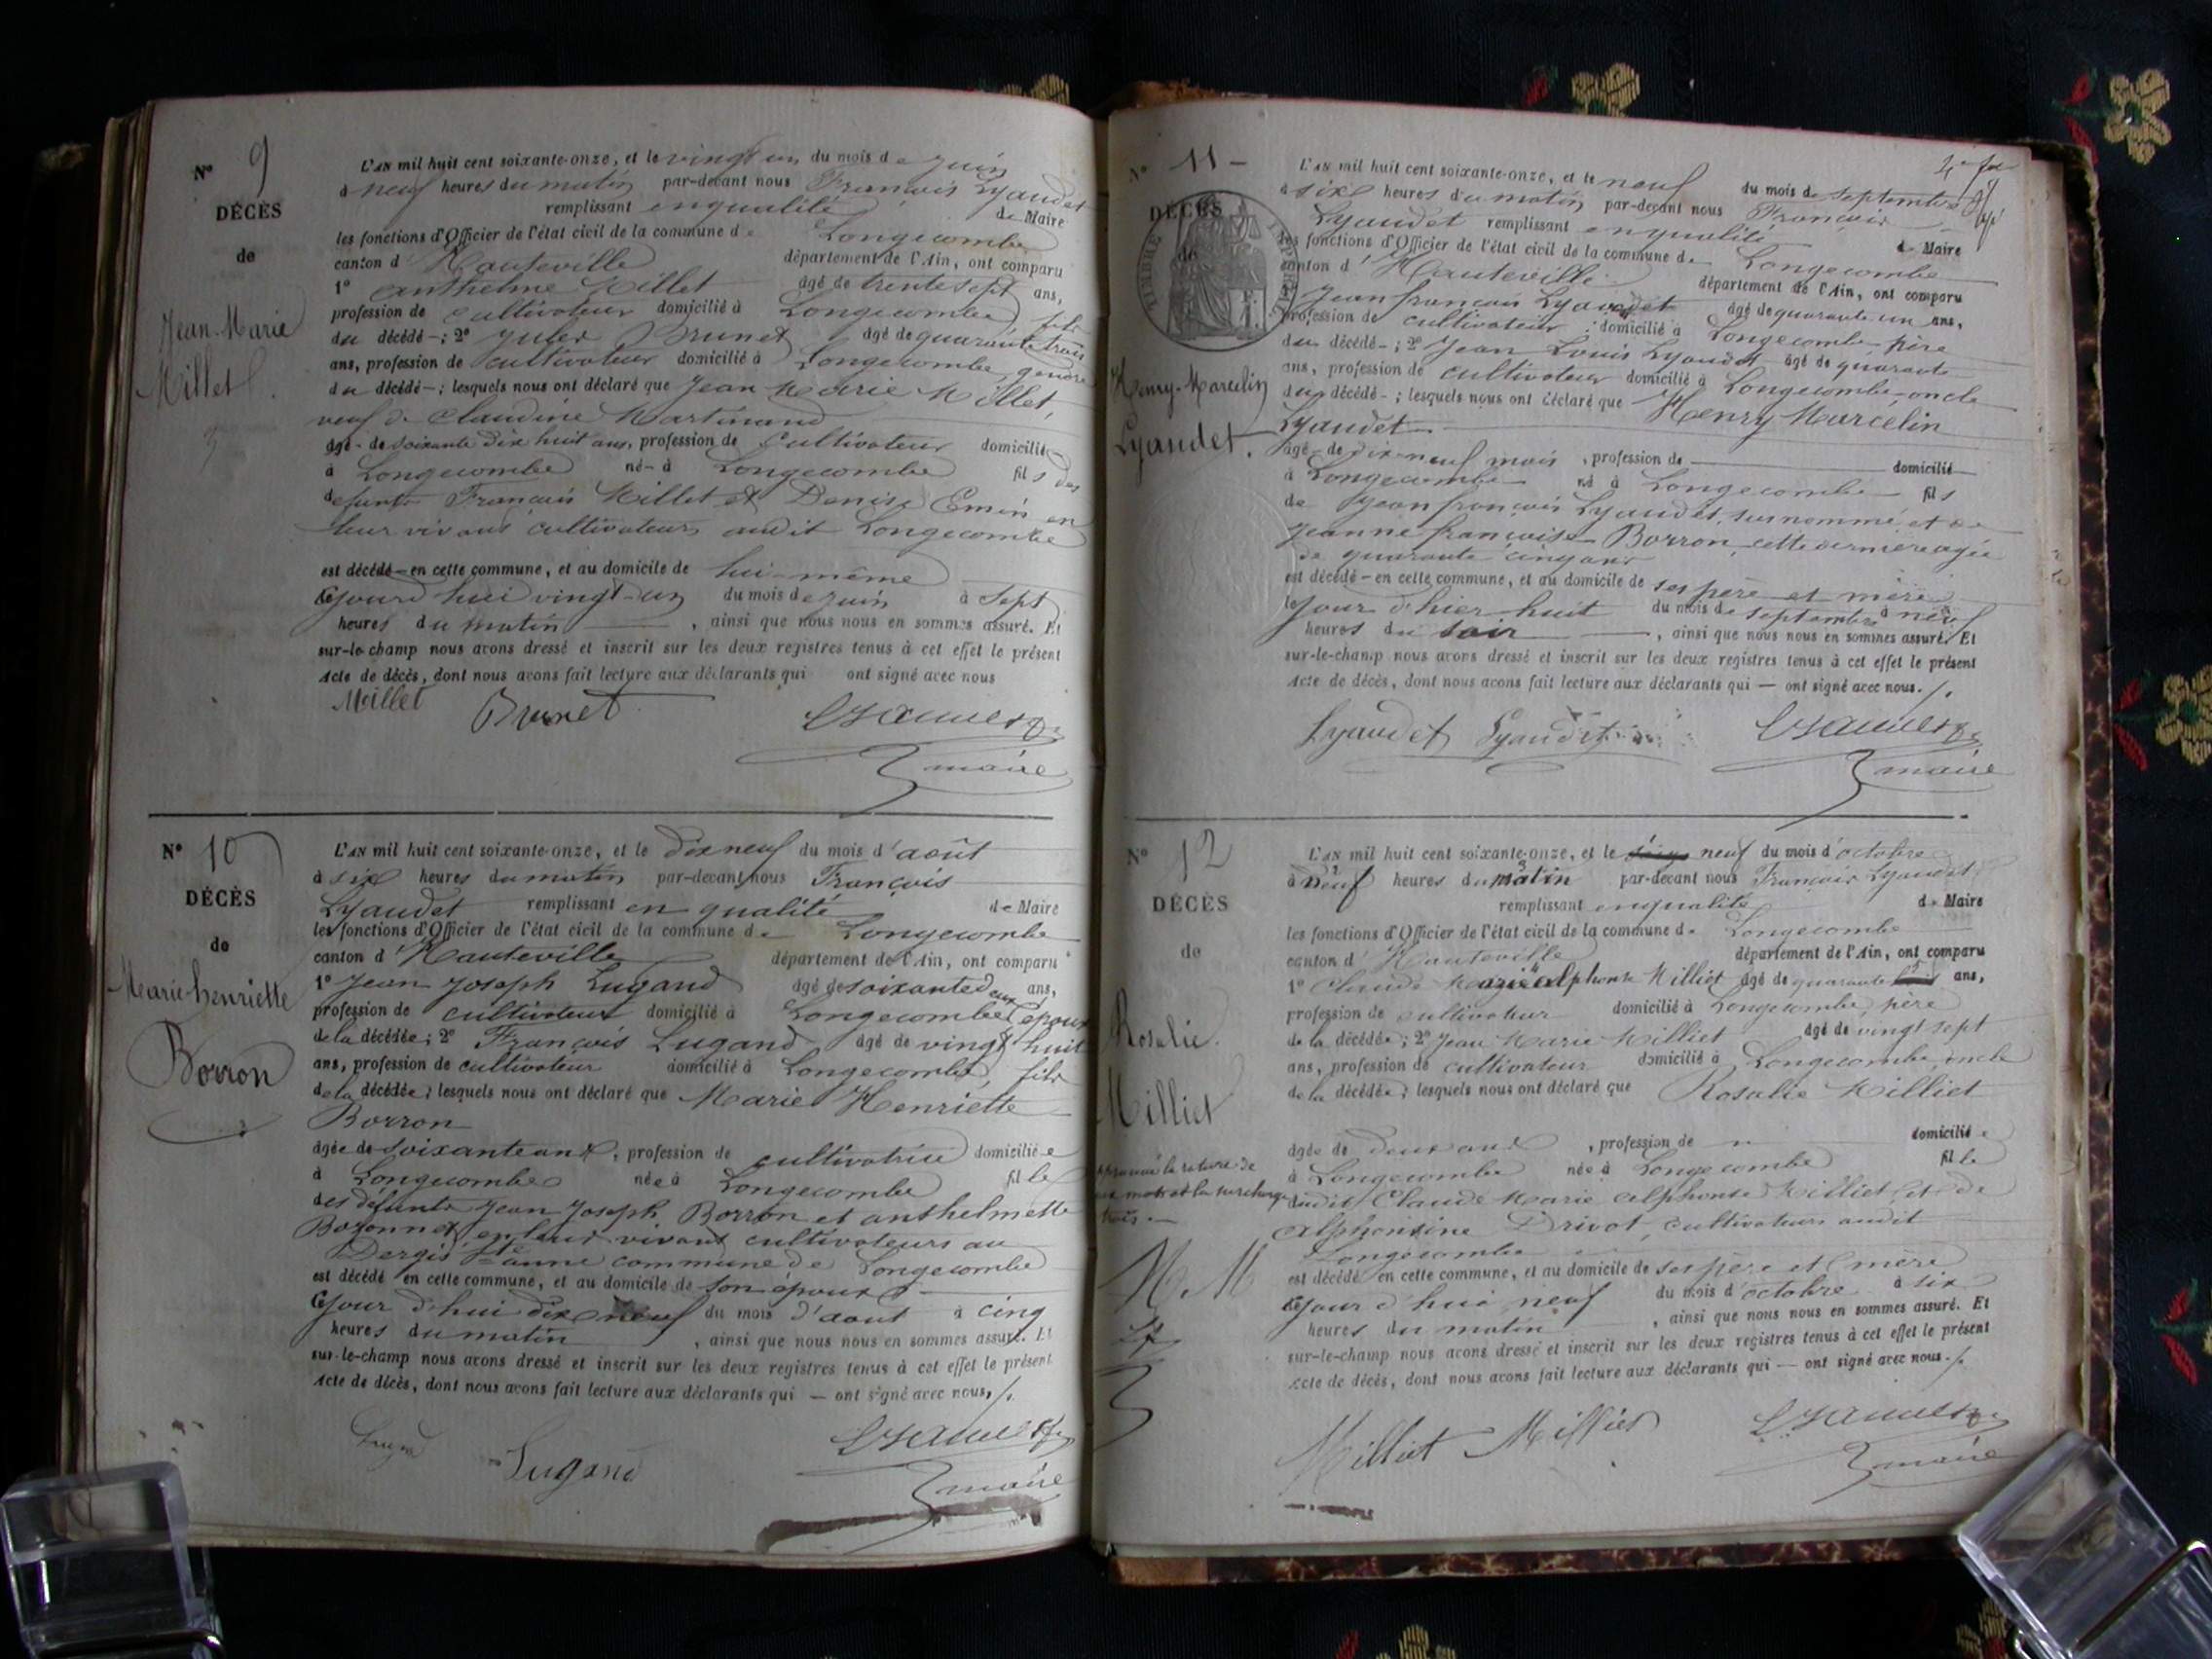 N° 9
DÉCÈS
de
Jean-Marie
Millet
L'AN mil huit cent soixante-onze, et le vingt un du mois de juin
à neuf heures du matin par-devant nous François Lyaudet
remplissant en qualité de Maire
les fonctions d'Officier de l'état civil de la commune de Longecombe
canton d'Hauteville département de l'Ain, ont comparu
1° Anthelme Millet âgé de trente sept ans,
profession de cultivateur domicilié à Longecombe, fils
du décédé-; 2° Jules Brunet âgé de quarante trois
ans, profession de cultivateur domicilié à Longecombe, gendre
du décédé-; lesquels nous ont déclaré que Jean Marie Millet,
veuf de Claudine Martinand
âgé- de soixante dix huit ans, profession de cultivateur domicilié
à Longecombe né- à Longecombe fils des
defunts François Millet et Denise Emin en
leur vivant cultivateurs audit Longecombe
est décédé- en cette commune, et au domicile de lui-même
le jourd'hui vingt-un du mois de juin à sept
heures du matin, ainsi que nous nous en sommes assuré. Et
sur-le-champ nous avons dressé et inscrit sur les deux registres tenus à cet effet le présent
Acte de décès, dont nous avons fait lecture aux déclarants qui ont signé avec nous
Millet Brunet Lyaudet
maire
N° 10
DÉCÈS
de
Marie-henriette
Borron
L'AN mil huit cent soixante-onze, et le dix neuf du mois d'août
à six heures du matin par-devant nous François
Lyaudet remplissant en qualité de Maire
les fonctions d'Officier de l'état civil de la commune de Longecombe
canton d'Hauteville département de l'Ain, ont comparu
1° Jean Joseph Lugand âgé de soixante deux ans,
profession de cultivateur domicilié à Longecombe, époux
de la décédée; 2° François Lugand âgé de vingt huit
ans, profession de cultivateur domicilié à Longecombe, fils
de la décédée; lesquels nous ont déclaré que Marie Henriette
Borron
âgée de soixante ans, profession de cultivatrice domiciliée
à Longecombe née à Longecombe fille
des défunts Jean Joseph Borron et anthelmette
en leur vivant cultivateurs au
commune de Longecombe
est décédé en cette commune, et au domicile de son époux
le jour d'hui dix neuf du mois d'aout à cinq
heures du matin, ainsi que nous nous en sommes assuré. Et
sur-le-champ nous avons dressé et inscrit sur les deux registres tenus à cet effet le présent
Acte de décès, dont nous avons fait lecture aux déclarants qui — ont signé avec nous,/.
Lugand Lyaudet
maire
N° 11 -
DÉCÈS
de
TIMBRE IMPERIAL
Henry-Marcelin
Lyaudet.
L'AN mil huit cent soixante-onze, et le neuf du mois de septembre
à six heures du matin par-devant nous François
Lyaudet remplissant en qualité de Maire
les fonctions d'Officier de l'état civil de la commune de Longecombe
canton d'Hauteville département de l'Ain, ont comparu
Jean françois Lyaudet âgé de quarante un ans,
profession de cultivateur domicilié à Longecombe père
du décédé-; 2° Jean Louis Lyaudet âgé de quarante
ans, profession de cultivateur domicilié à Longecombe oncle
du décédé-; lesquels nous ont déclaré que Henry Marcelin
Lyaudet
âgé- de dix neuf mois, profession de domicilié
à Longecombe né à Longecombe fils
de Jean françois Lyaudet, surnommé et de
Jeanne françoise Borron, cette dernière agée
de quarante cinq ans
est décédé- en cette commune, et au domicile de ses père et mère
le jour d'hier huit du mois de septembre à neuf
heures du soir, ainsi que nous nous en sommes assuré. Et
sur-le-champ nous avons dressé et inscrit sur les deux registres tenus à cet effet le présent
Acte de décès, dont nous avons fait lecture aux déclarants qui — ont signé avec nous./.
Lyaudet Lyaudet Lyaudet
maire
N° 12
DÉCÈS
de
Rosalie
Milliet
L'AN mil huit cent soixante-onze, et le neuf du mois d'octobre
à neuf heures du matin par-devant nous François Lyaudet
remplissant en qualité de Maire
les fonctions d'Officier de l'état civil de la commune de Longecombe
canton d'Hauteville département de l'Ain, ont comparu
1° Claude Marie alphonse Milliet âgé de quarante ans,
profession de cultivateur domicilié à Longecombe, père
de la décédée; 2° Jean Marie Milliet âgé de vingt sept
ans, profession de cultivateur domicilié à Longecombe, oncle
de la décédée; lesquels nous ont déclaré que Rosalie Milliet
âgée de deux ans, profession de domiciliée
à Longecombe née à Longecombe fille
dudit Claude Marie alphonse Milliet et de
Alphonsine Drivot, cultivateurs audit
Longecombe
est décédé en cette commune, et au domicile de ses père et mère
le jour d'hui neuf du mois d'octobre à six
heures du matin, ainsi que nous nous en sommes assuré. Et
sur-le-champ nous avons dressé et inscrit sur les deux registres tenus à cet effet le présent
Acte de décès, dont nous avons fait lecture aux déclarants qui — ont signé avec nous./.
la rature de
mots et la surcharge
M. M
Milliet Milliet Lyaudet
maire